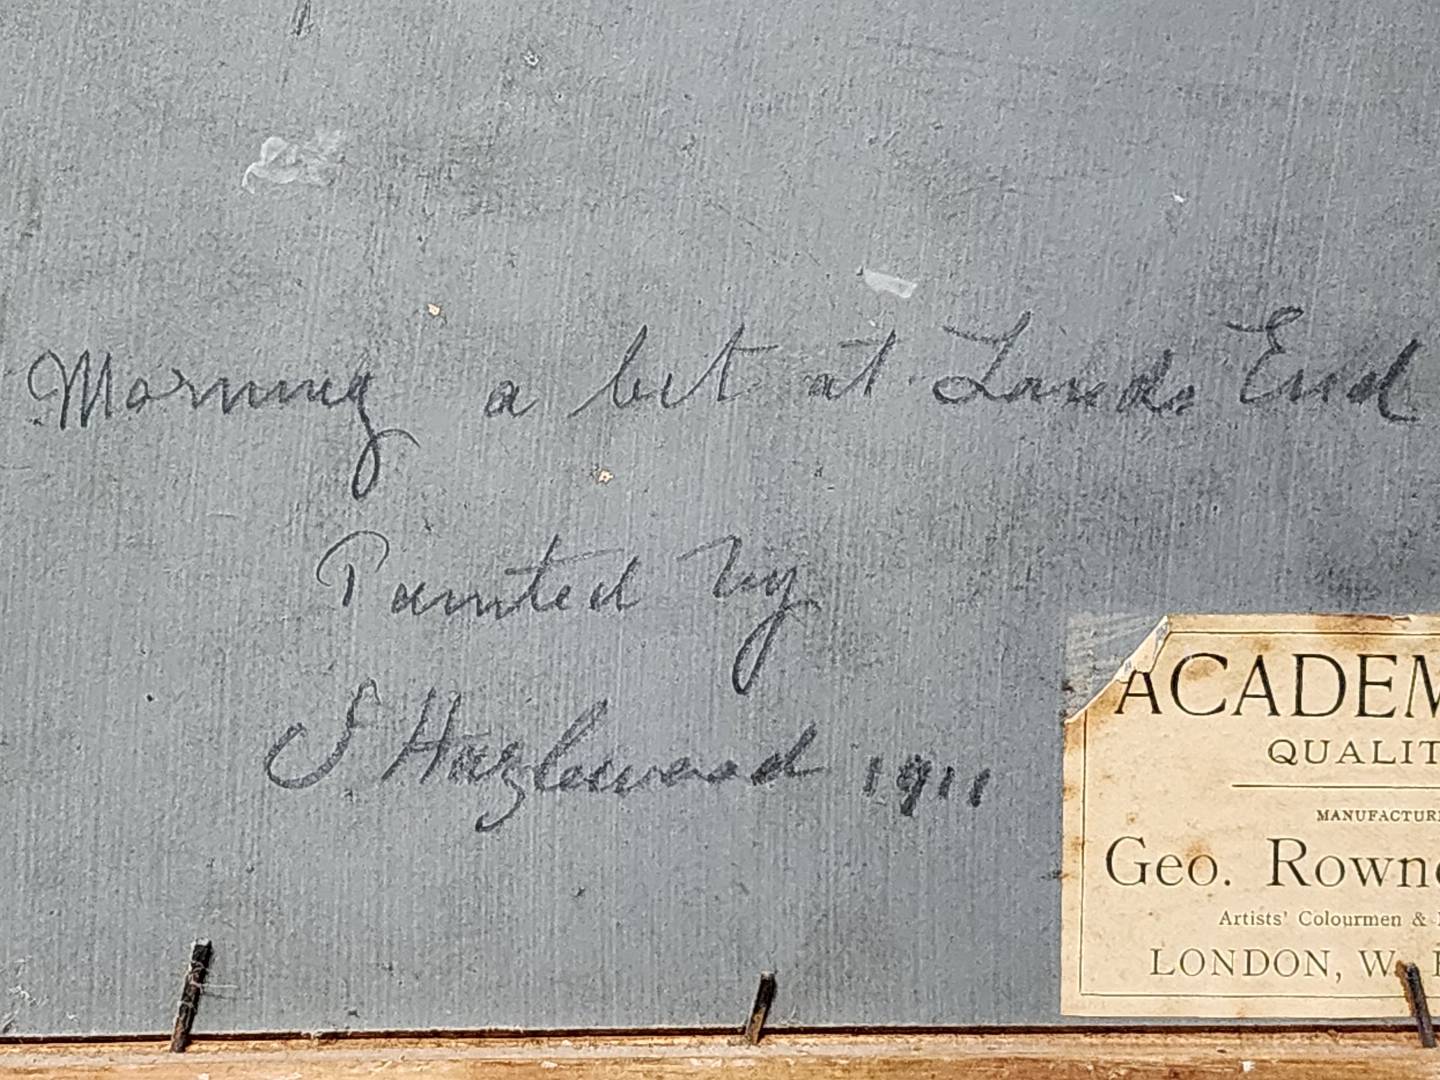 Morning a bit at Lands End
Painted by
S Hazlewood 1911
ACADEM
QUALIT
MANUFACTUR
Geo. Rown
Artists' Colourmen &
LONDON, W.